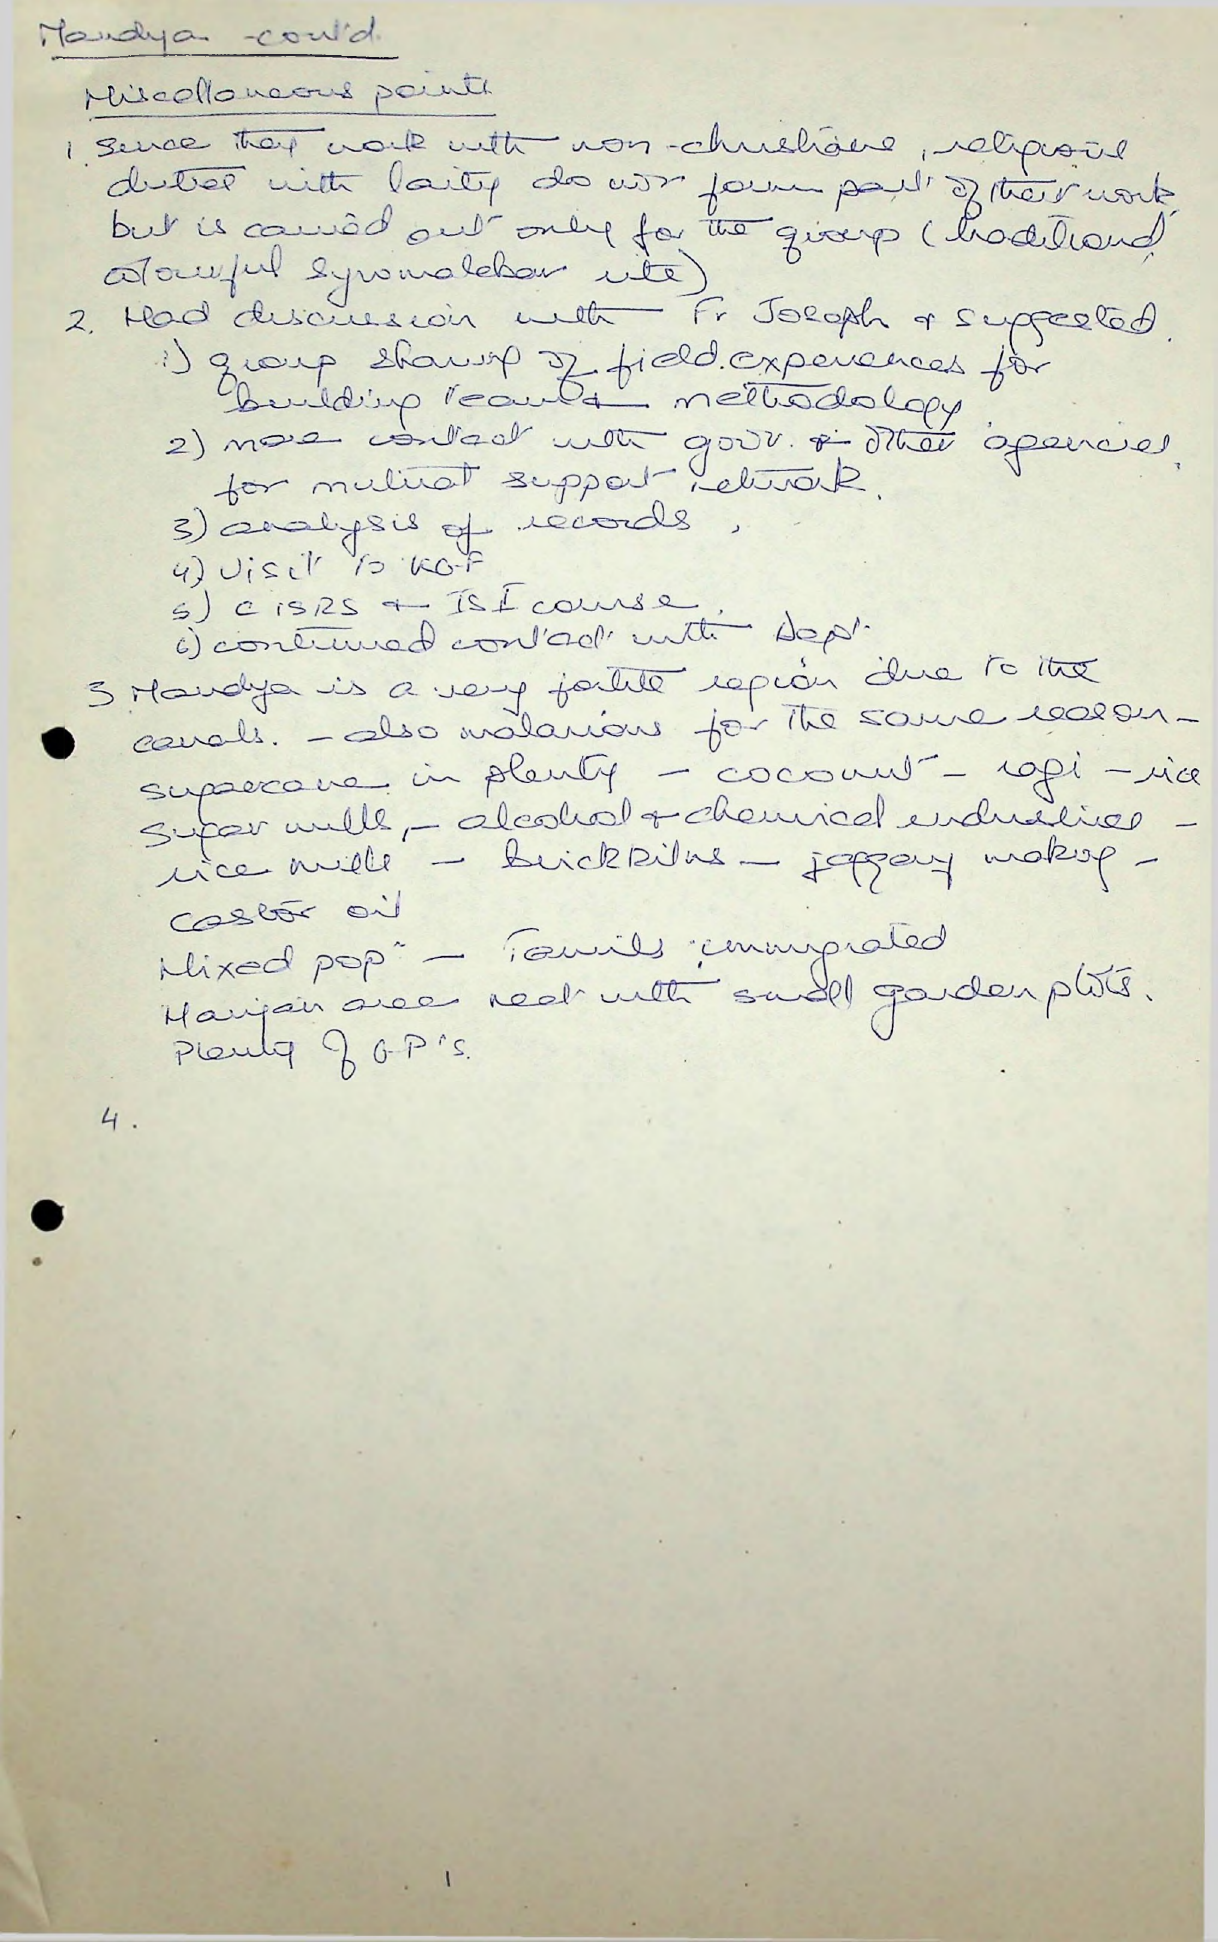 Mandya - cont'd
Miscellaneous points
1. Since they work with non-christians, religious
duties with laity do not form part of their work,
but is carried out only for the group (traditional,
colourful Syromalabar rite)
2. Had discussion with Fr Joseph & suggested.
1) group sharing of field experiences for
building team & methodology
2) more contact with govt. & other agencies,
for mutual support network.
3) analysis of records,
4) Visit to KGF
5) CISRS & ISI course.
6) continued contact with Dept.
3 Mandya is a very fertile region due to the
canals. - also malarious for the same reason -
sugarcane in plenty - coconut - ragi - rice
sugar mills, - alcohol & chemical industries -
rice mills - brick kilns - jaggary making -
castor oil
Mixed popn - Tamils immigrated
Harijan area neat with small garden plots.
Plenty of G-P's.
4.
1